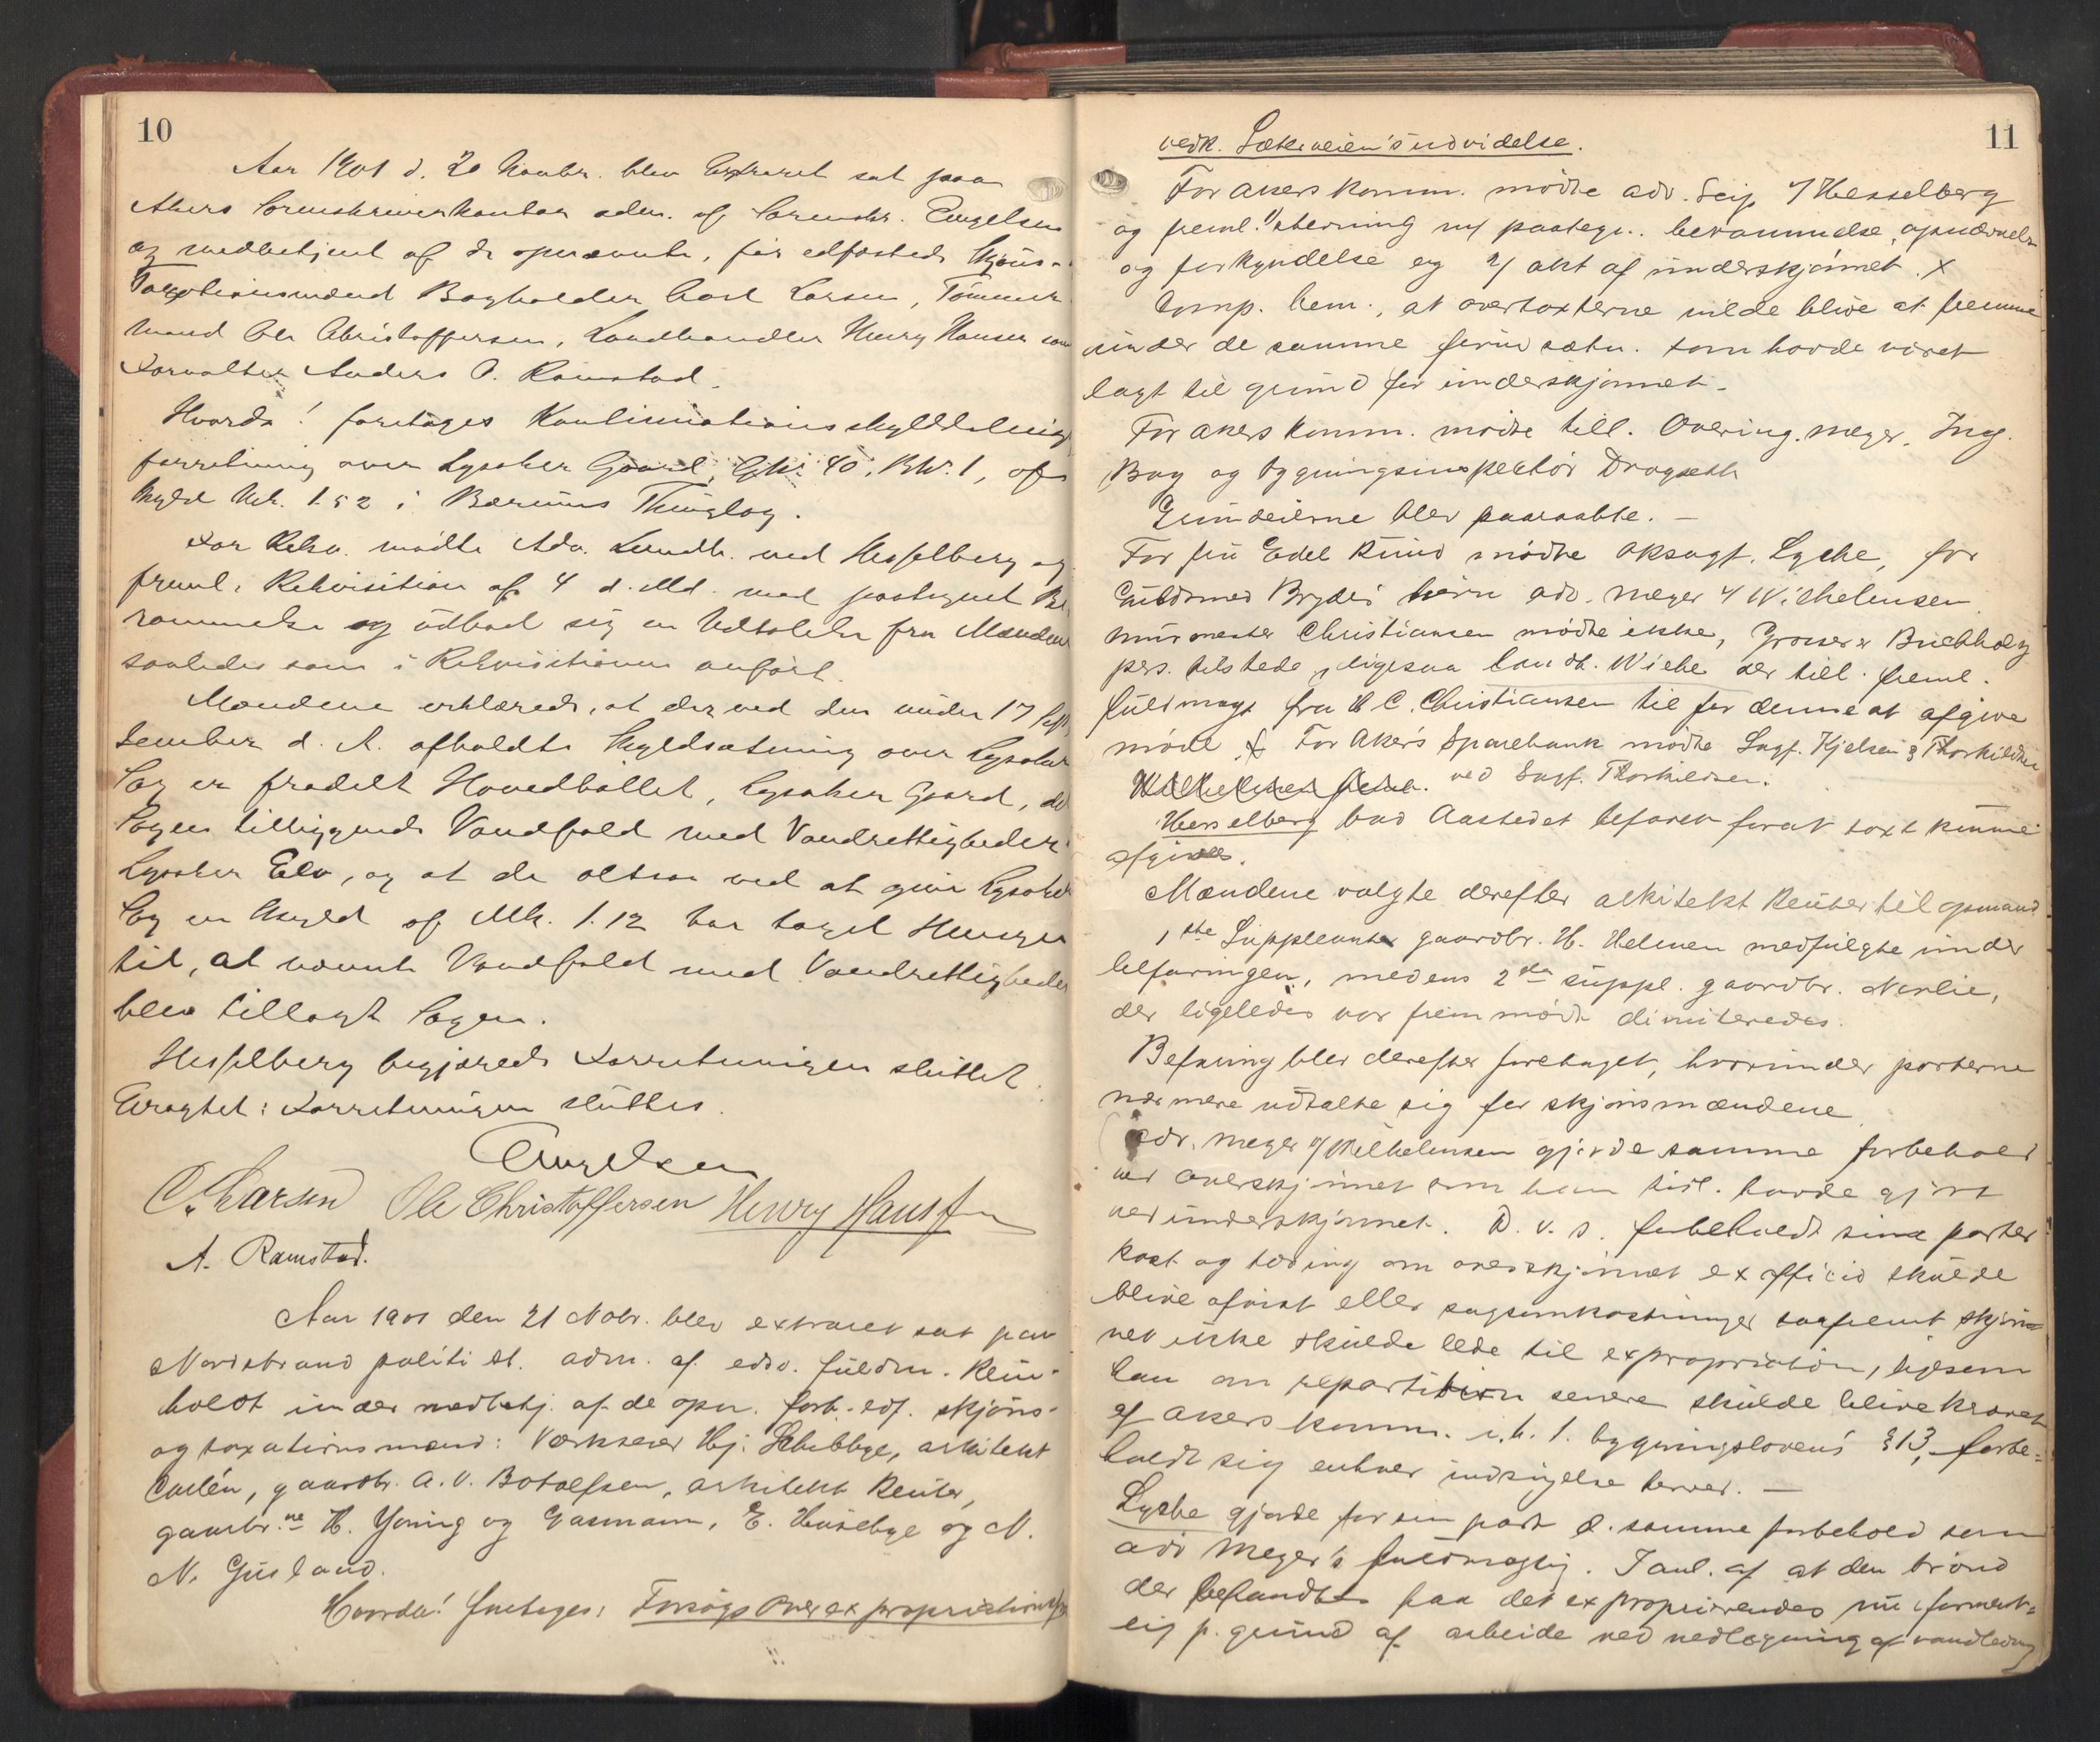 10
Aar 1901 d. 20 Novbr. blev Extraret sat paa
Akers Sorenskriverkontor adm. af Sorenskr. Engelsen
og medbetjent af de opnævnte, før edfæstede Skjøns-
Taxationsmænd Bogholder Carl Larsen, Tømmer
mand Ole Christoffersen, Landhandler Henry Hansen som
Forvalter Anders O. Ramstad.
Hvorda! foretages Kontinuationsskylddelings
forretning over Lysaker Gaard, Gnr. 40, Bnr. 1, af
Skyld Mk. 1.52 i Bærums Thinglag.
For Rekv. mødte Adv. Lundh ved Hesselberg og
freml. Rekvisition af 4 d. Md. med paategnet Be
rammelse og udbad sig en Udtalelse fra Mændene
saaledes som i Rekvisitionen anført.
Mændene erklærede, at der ved den under 17 Sep
tember d. A. afholdte Skyldsætning over Lysaker
Sag er fradelt Hovedbøllet, Lysaker Gaard, det
Sagen tilliggende Vandfald med Vandrettigheder i
Lysaker Elv, og at de altsaa ved at give Lysaker
Sag en Skyld af Mk. 1.12 har taget Hensyn
til, at nævnte Vandfald med Vandrettigheder
blev tillagt Sagen.
Hesselberg begjærede Forretningen sluttet.
Eragtet: Forretningen sluttes.
Engelsen
C. Larsen Ole Christoffersen Henry Hanssen
A. Ramstad.
Aar 1901 den 21 Nobr. blev extraret sat paa
Nordstrand politi st. adm. af edsv. fuldm. Rein-
holdt under medbetj. af de opn. forh. edf. skjøns-
og taxationsmænd: Værkseier Hj. Schibbye, arkitekt
Carlén, gaardbr. A. V. Botolfsen, arkitekt Reuter,
gaardbr.ne H. Young og Gasmann, E. Husebye og N.
N. Gusland.
Hvorda! foretages: Forsøgs Overexpropriations
11
vedk. Sæterveien's udvidelse.
For Akers komm. mødte adv. Seip v/ Hesselberg
og freml. 1) stevning m/ paategn. berammelse, opnævnelse
og forkyndelse og 2/ akt af underskjønnet. X
Comp. bem., at overtaxterne vilde blive at fremme
under de samme forudsætn. som havde været
lagt til grund for underskjønnet.
For Akers komm. mødte till. Overing. Meyer, Ing.
Bay og bygningsinspektør Dragseth
Grundeierne blev paaraabte. —
For fru Edel Knud mødte oksagf. Lycke, for
Guldsmed Bryde's børn adv. Meyer v/ Wilhelmsen.
Murmester Christiansen mødte ikke, Grosserer Buchholz
pers. tilstede, ligesaa landh. Wiehe der till. freml.
fuldmagt fra H C. Christiansen til for denne at afgive
møde. X For Aker's Sparebank mødte Sagf. Kjelsen & Thorkildsen
ved Sagf. Thorkildsen.
Hesselberg bad Aastedet befaret forat taxt kunne
afgives.
Mændene valgte derefter arkitekt Reuter til opmand
1ste Suppleant gaardbr. H. Helmen medfulgte under
befaringen, medens 2den suppl. gaardbr. Nerlie,
der ligeledes var fremmødt dimiteredes.
Befaring blev derefter foretaget, hvorunder parterne
nærmere udtalte sig for skjønsmændene
Adv. Meyer v/ Wilhelmsen gjorde samme forbehold
ved overskjønnet som han tidl. havde gjort
ved underskjønnet. D. v. s. forbeholdt sine parter
kost og tæring om overskjønnet ex officio skulde
blive afvist eller sagsomkostninger saafremt skjøn-
net ikke skulde lede til expropriation, ligesom
han om repartition senere skulde blive krævet
af Akers komm. i. h. t. bygningslovens § 13, forbe-
holdt sig enhver indsigelse herved. —
Lycke gjorde for sin part d. samme forbehold som
adv Meyer's fuldmægtig. I anl. af at den brønd
der befandtes paa det exproprierendes nu forment-
lig p. grund af arbeide ved nedlægning af vandledning